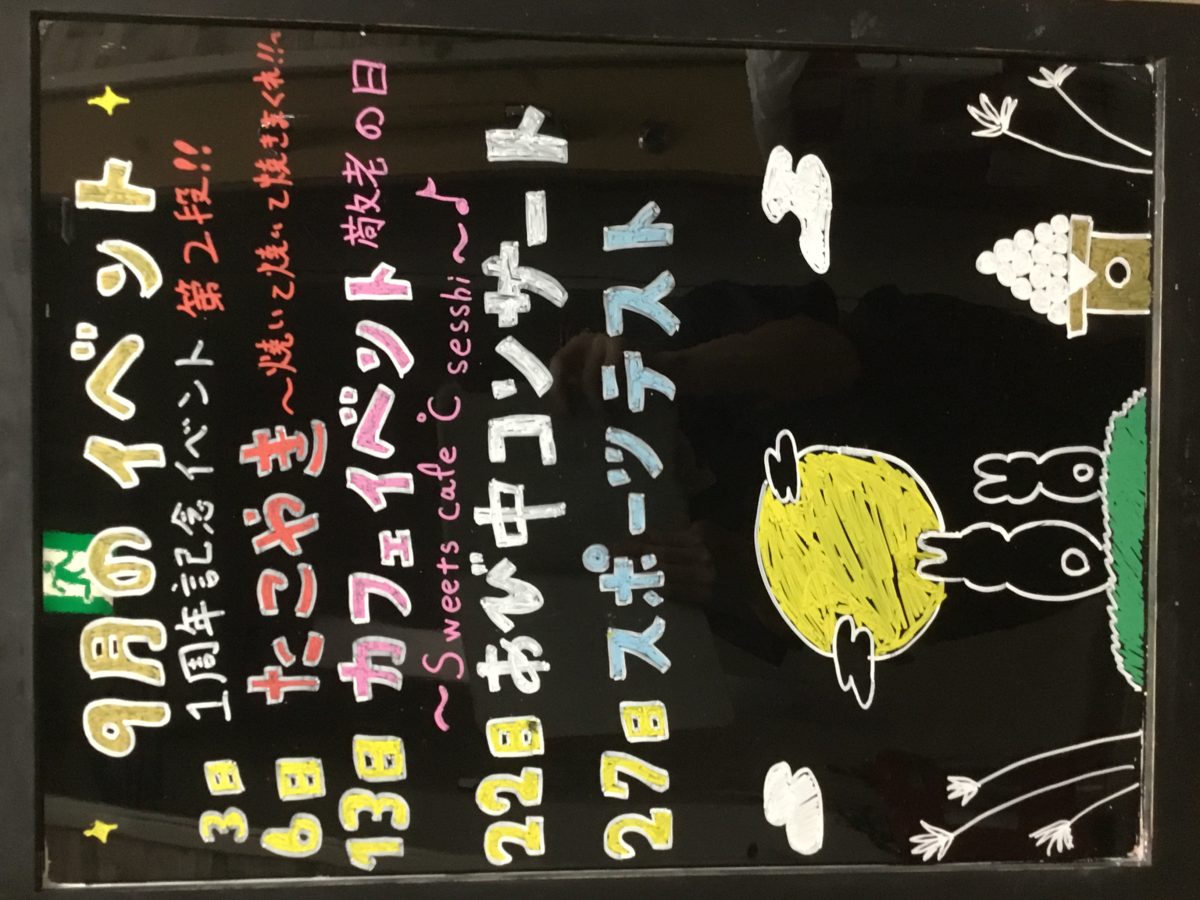 9月のイベント
3日 1周年記念イベント 第2段!!
6日 たこやき 〜焼いて焼いて焼きまくれ!!〜
13日 カフェイベント 敬老の日
〜Sweets cafe Ċ sesshi〜♪
22日 あび中コンサート
27日 スポーツテスト